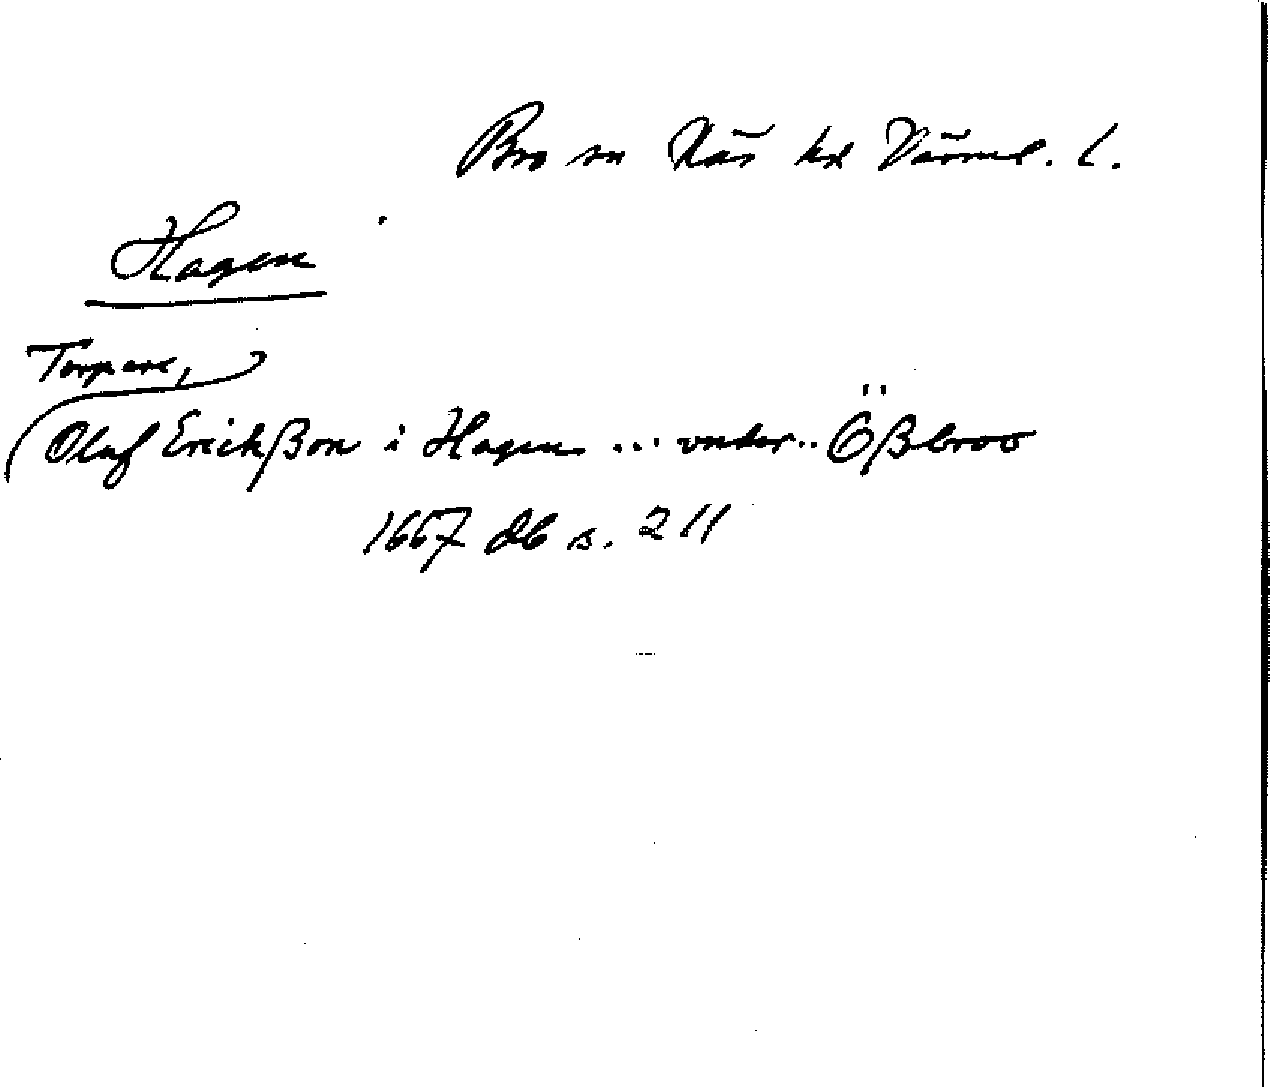 Bro sn Näs hd Värml. l.
Hagen
Torpare,
Oluf Erickßon i Hagen ... vnder .. Ößbroo
1667 db s. 211